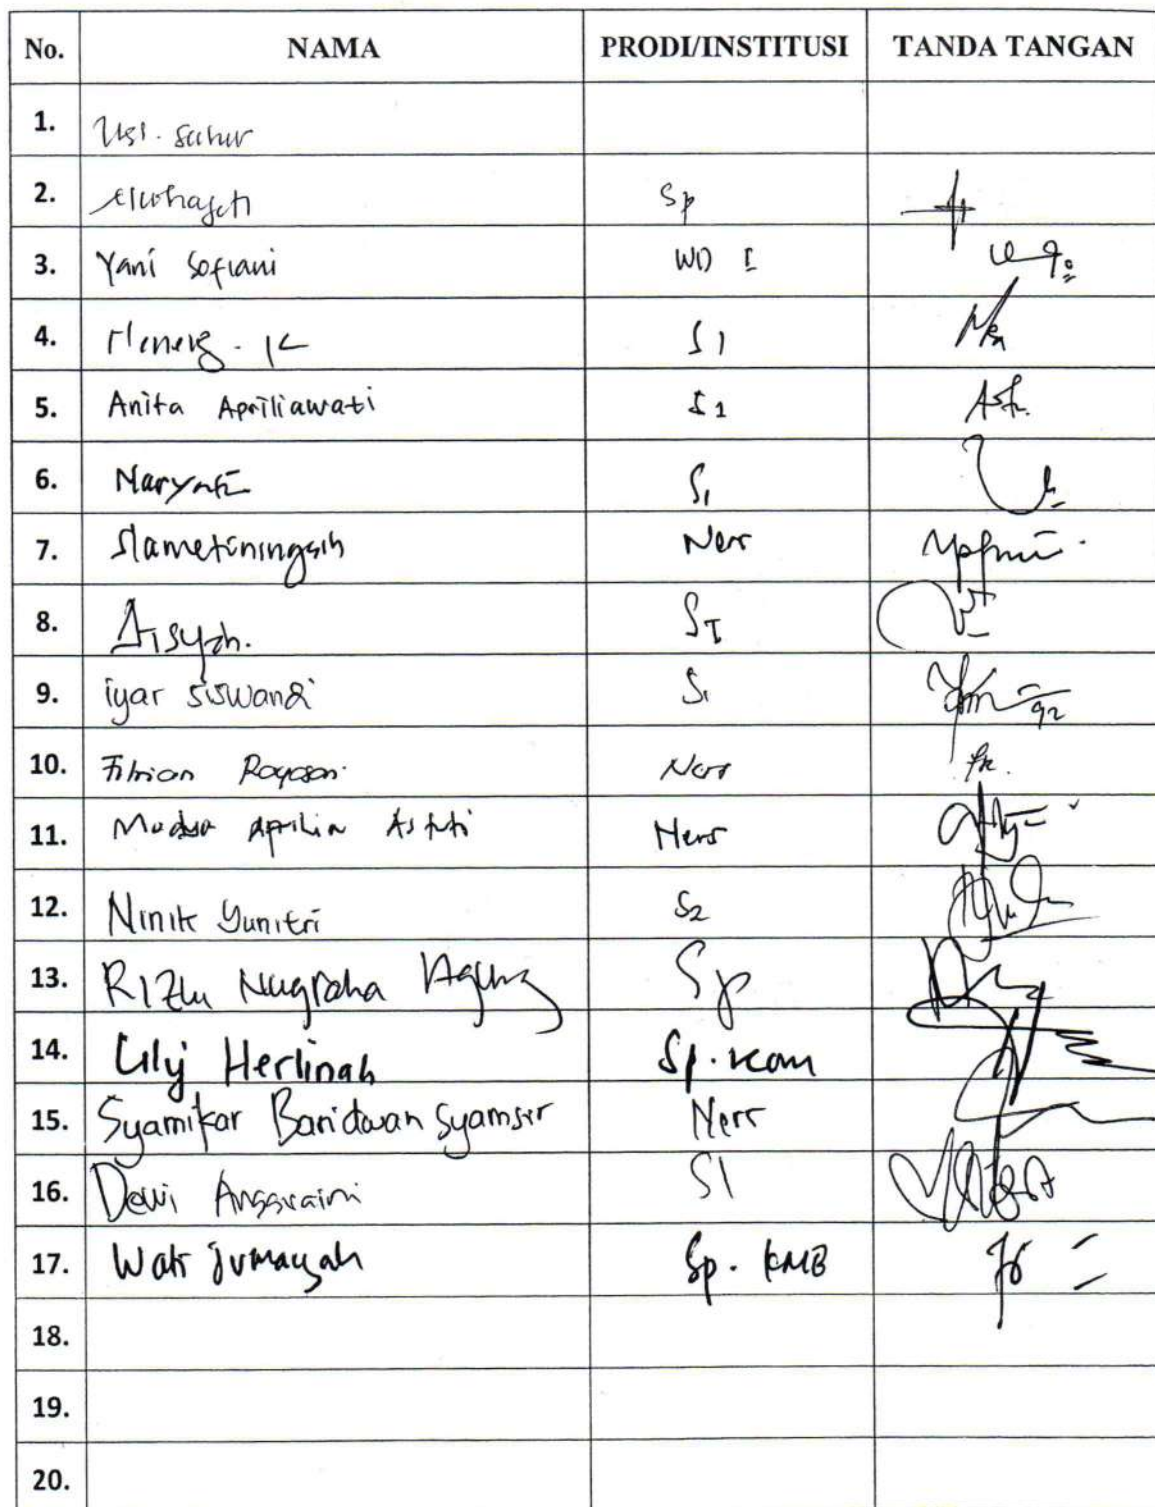 No. NAMA PRODI/INSTITUSI TANDA TANGAN
1.
2. Sp
3. Yani Sofiani WD I
4. S1
5. Anita Apriliawati S1
6. Naryati S1
7. Slametiningsih Ners
8. Aisyah. SI
9. iyar siswandi S1
10. Fitrian Rayasari Ners
11. Aprilia Astuti Ners
12. Ninik Yunitri S2
13. Nugraha Agung Sp
14. Lily Herlinah Sp. Kom
15. Syamikar Baridwan Syamsir Ners
16. Dewi Anggraini S1
17. Wati Jumaiyah Sp. KMB
18.
19.
20.